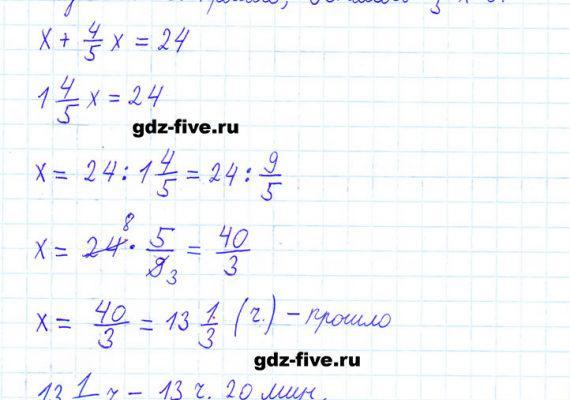 x + 4/5 x = 24
1 4/5 x = 24
gdz-five.ru
x = 24 : 1 4/5 = 24 : 9/5
x = 24 8 · 5/9 3 = 40/3
x = 40/3 = 13 1/3 (ч.) – прошло
gdz-five.ru
13 1 ч – 13 ч. 20 мин.